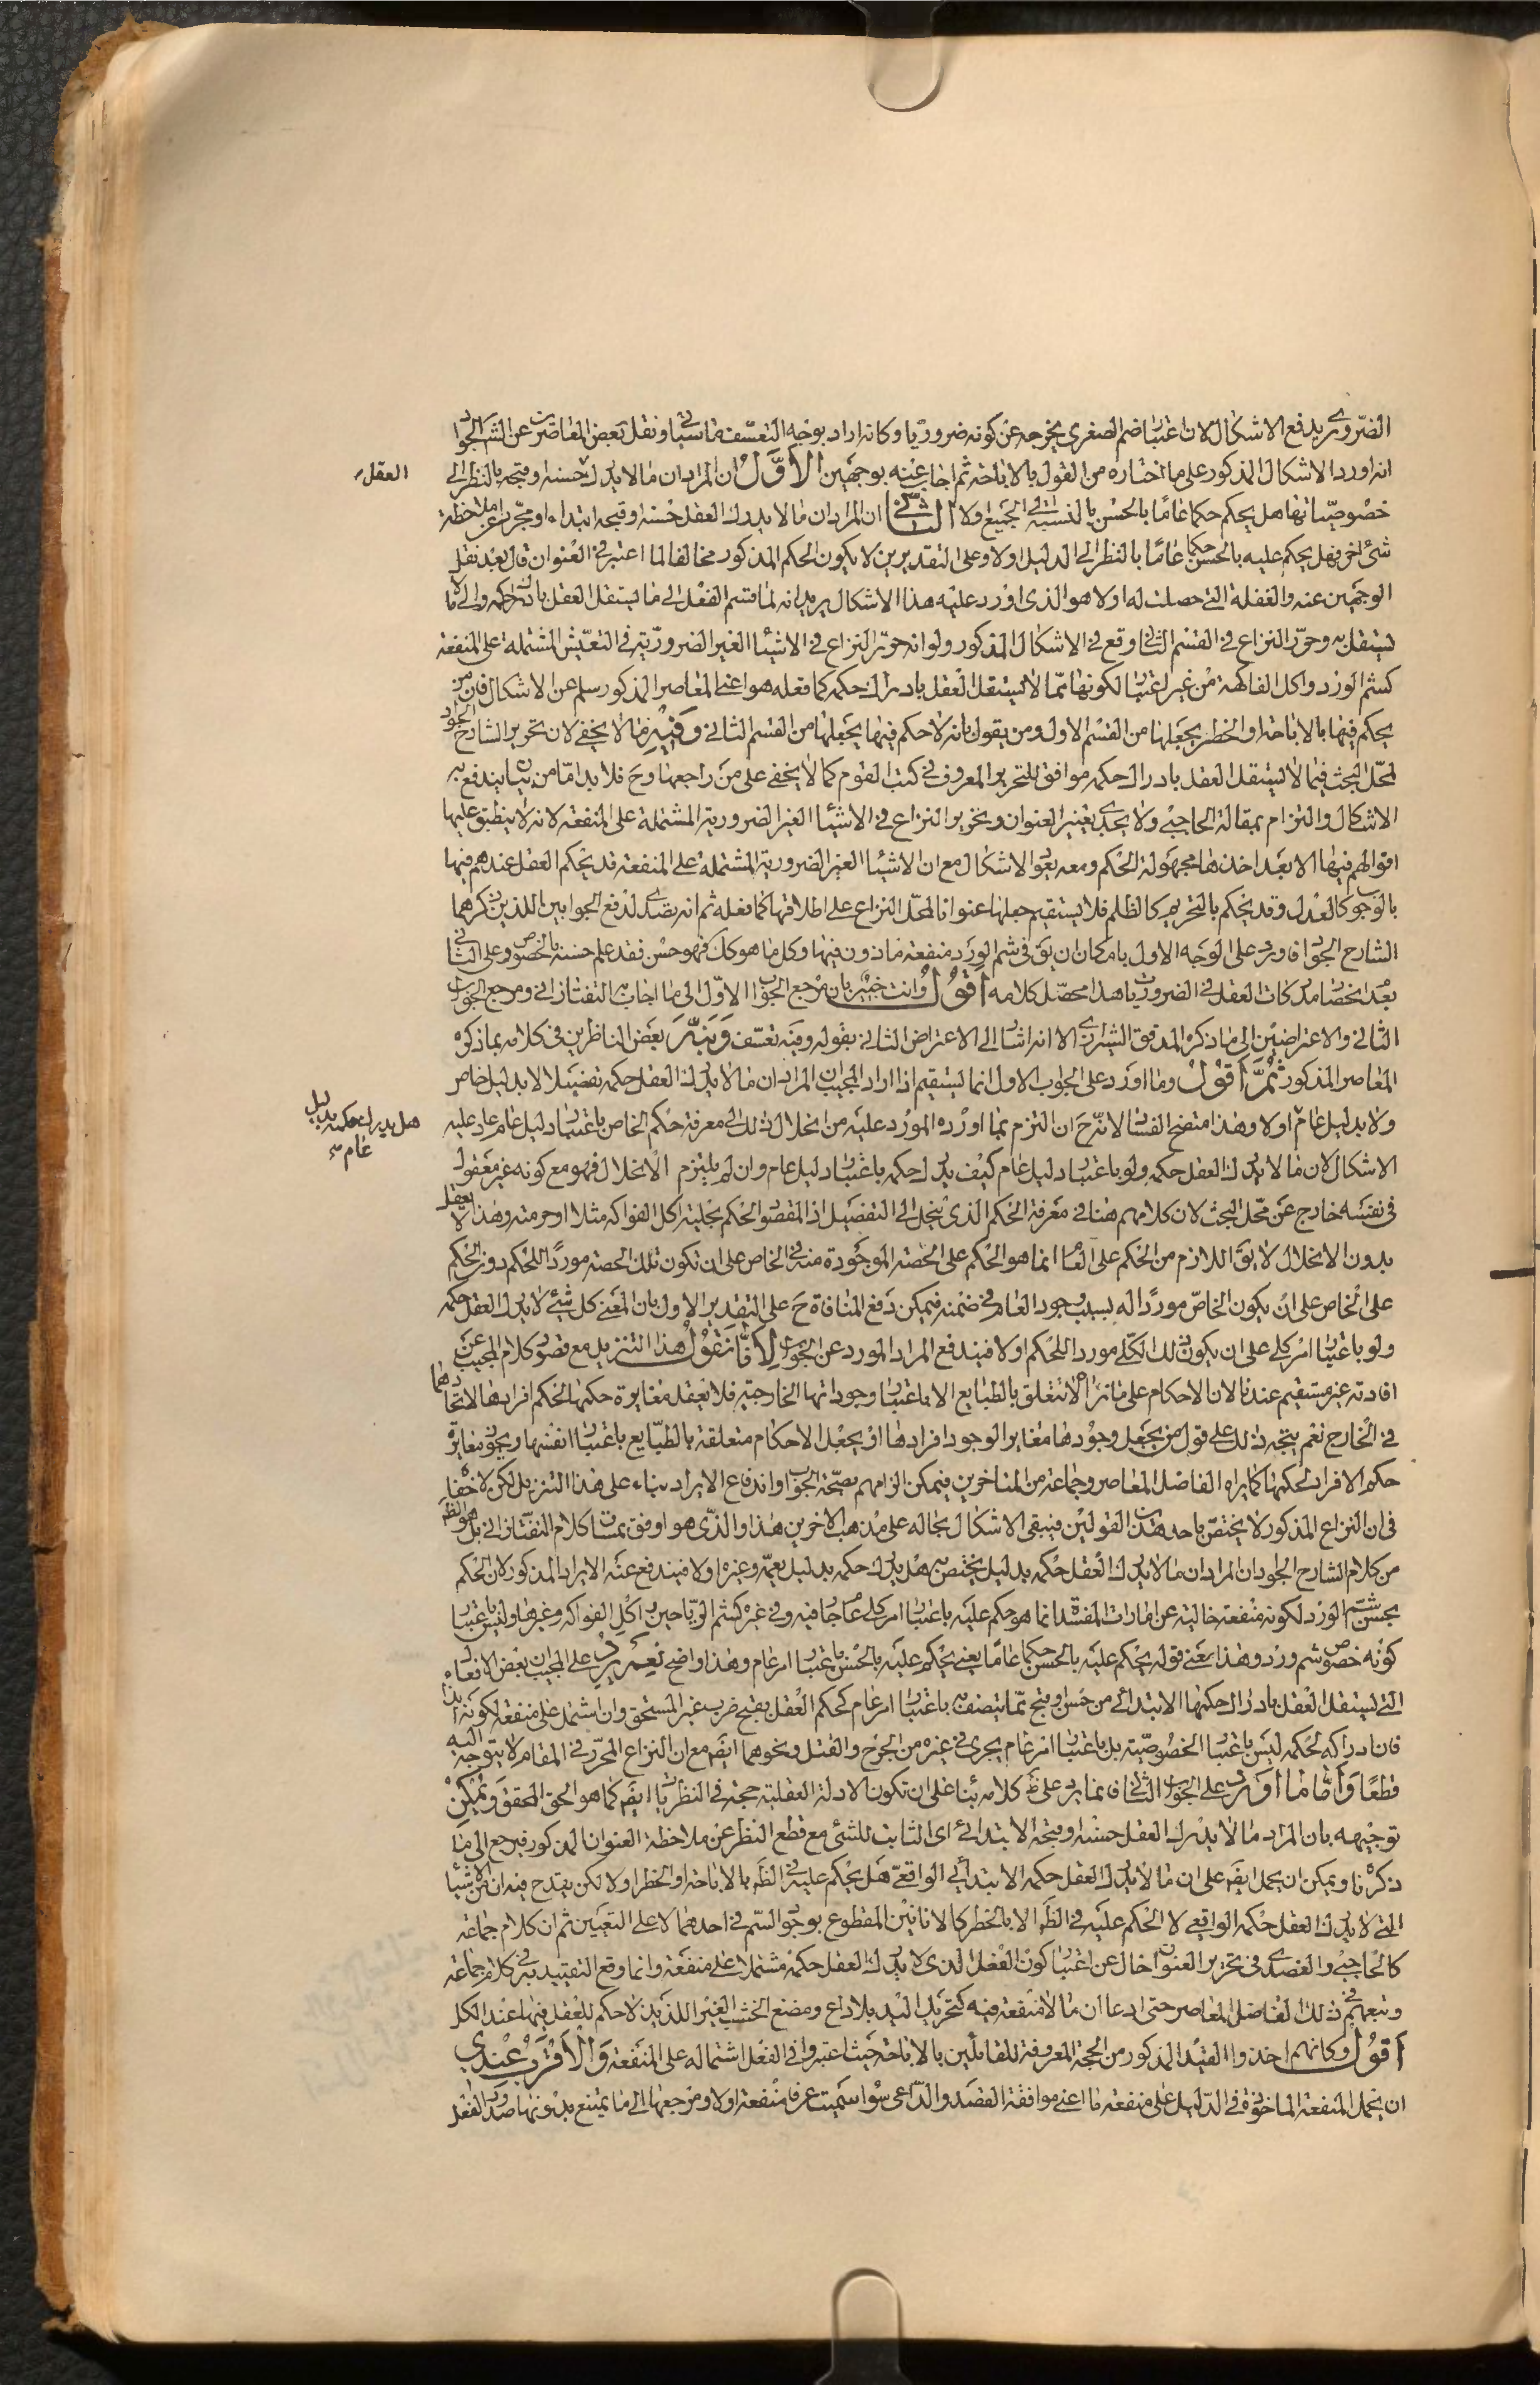 الضرورى يدفع الاشكال لان اعتبار ضم الصغرى يخرجه عن كونه ضروريا وكانه اراد بوجه التعسف ما سياتى ونقل بعض المعاصرين عن الشارح الجواد
انه اورد الاشكال المذكور على ما اختاره من القول بالاباحة ثم اجاب عنه بوجهين الاول ان المراد ان ما لا يدرك حسنه وقبحه بالنظر الى
العقل
خصوصياتها هل يحكم حكما عاما بالحسن بالنسبة الى الجميع اولا الثانى ان المراد ان ما لا يدرك العقل حسنه وقبحه ابتداء او مجردا عن ملاحظة
شئ اخر فهل يحكم عليه بالحسن حكما عاما بالنظر الى الدليل اولا وعلى التقديرين لا يكون الحكم المذكور مخالفا لما اعتبر فى العنوان قال بعد نقل
الوجهين عنه والغفلة التى حصلت له اولا هو الذى اورد عليه هذا الاشكال يريد انه لما قسم الفعل الى ما يستقل العقل بادراك حكمه والى ما لا
يستقل به وحرر النزاع فى القسم الثانى وقع فى الاشكال المذكور ولو انه حرر النزاع فى الاشياء الغير الضرورية فى التعيش المشتملة على المنفعة
كشم الورد واكل الفاكهة من غير اعتبار لكونها مما لا يستقل العقل بادراك حكمه كما فعله هو اعنى المعاصر المذكور سلم عن الاشكال فان من
يحكم فيها بالاباحة او الحظر يجعلها من القسم الاول ومن يقول بانه لا حكم فيها يجعلها من القسم الثانى وفيه ما لا يخفى لان تحرير الشارح الجواد
لمحل البحث فيما لا يستقل العقل بادراك حكمه موافق للتحرير المعروف فى كتب القوم كما لا يخفى على من راجعها وح فلا بد اما من بيان يندفع به
الاشكال والتزام بمقالة الحاجبى ولا يجدى تغيير العنوان وتحرير النزاع فى الاشياء الغير الضرورية المشتملة على المنفعة لانه لا ينطبق عليها
اقوالهم فيها الا بعد اخذها مجهولة الحكم ومعه يعود الاشكال مع ان الاشياء الغير الضرورية المشتملة على المنفعة قد يحكم العقل عندهم فيها
بالوجوب كالعدل وقد يحكم بالتحريم كالظلم فلا يستقيم جعلها عنوانا لمحل النزاع على اطلاقها كما فعله ثم انه تصدى لدفع الجوابين اللذين ذكرهما
الشارح الجواد فاورد على الوجه الاول بامكان ان يق فى شم الورد منفعة ماذون فيها وكل ما هو كك فهو حسن فقد علم حسنه بالخصوص وعلى الثانى
بعدم انحصار مدركات العقل فى الضروريات هذا محصل كلامه اقول وانت خبير بان مرجع الجواب الاول الى ما اجاب به التفتازانى ومرجع الجواب
الثانى والاعتراضين الى ما ذكره المدقق الشيرازى الا انه اشار الى الاعتراض الثانى بقوله وفيه تعسف وبينه بعض الناظرين فى كلامه بما ذكره
المعاصر المذكور ثم اقول وما اورد على الجواب الاول انما يستقيم اذا اراد المجيب ان المراد ان ما لا يدرك العقل حكمه تفصيلا لا بدليل خاص
ولا بدليل عام اولا وهذا متضح الفساد لانه ح ان التزم بما اورده المورد عليه من انحلال ذلك الى معرفة حكم الخاص باعتبار دليل عام عاد عليه
هل يدرك حكمه بدليل
عام
الاشكال لان ما لا يدرك العقل حكمه ولو باعتبار دليل عام كيف يدرك حكمه باعتبار دليل عام وان لم يلتزم الانحلال فهو مع كونه غير معقول
فى نفسه خارج عن محل البحث لان كلامهم هنا فى معرفة الحكم الذى ينحل الى التفصيل اذ المقصود الحكم بحلية اكل الفواكه مثلا او حرمته وهذا لا يعقل
بدون الانحلال لا يق اللازم من الحكم على العام انما هو الحكم على الحصة الموجودة منه فى الخاص على ان تكون تلك الحصة موردا للحكم دون الحكم
على الخاص على ان يكون الخاص موردا له بسبب وجود العام فى ضمنه فيمكن دفع المنافاة ح على التقدير الاول بان المعنى كل شئ لا يدرك العقل حكمه
ولو باعتبار امر كلى على ان يكون ذلك الكلى موردا للحكم اولا فيندفع المراد المورد عن الجواب لانا نقول هذا التنزيل مع قصور كلام المجيب عن
افادته غير مستقيم عندنا لان الاحكام على ما نراه لا تتعلق بالطبايع الا باعتبار وجوداتها الخارجية فلا يعقل مغايرة حكمها لحكم افرادها لاتحادهما
فى الخارج نعم يتجه ذلك على قول من يجعل وجودها مغايرا لوجود افرادها او يجعل الاحكام متعلقة بالطبايع باعتبار انفسها ويجوز مغايرة
حكم الافراد لحكمها كما يراه الفاضل المعاصر وجماعة من المتاخرين فيمكن الزامهم بصحة الجواب واندفاع الايراد بناء على هذا التنزيل لكن لا خفاء
فى ان النزاع المذكور لا يختص باحد هذين القولين فيبقى الاشكال بحاله على مذهب الاخرين هذا والذى هو اوفق بمساق كلام التفتازانى بل هو الظ
من كلام الشارح الجواد ان المراد ان ما لا يدرك العقل حكمه بدليل يختص به هل يدرك حكمه بدليل يعمه وغيره اولا فيندفع عنه الايراد المذكور لان الحكم
بحسن شم الورد لكونه منفعة خالية عن امارات المفسدة انما هو حكم عليه باعتبار امر كلى عام جار فيه وفى غيره كشم الرياحين واكل الفواكه وغيرها وليس باعتبار
كونه خصوص شم ورد وهذا معنى قوله يحكم عليه بالحسن حكما عاما يعنى يحكم عليه بالحسن باعتبار امر عام وهذا واضح نعم يرد على المجيب ان بعض الافعال
التى يستقل العقل بادراك حكمها الابتدائى من حسن وقبح مما يتصف به باعتبار امر عام كحكم العقل بقبح ضرب غير المستحق وان اشتمل على منفعة لكونه ايذاء
فان ادراكه لحكمه ليس باعتبار الخصوصية بل باعتبار امر عام يجرى فى غيره من الجرح والقتل ونحوهما ايض مع ان النزاع المحرر فى المقام لا يتوجه اليه
قطعا واما ما اورد على الجواب الثانى فانما يرد على ظ كلامه بناء على ان تكون الادلة العقلية حجة فى النظريات ايض كما هو الحق المحقق ويمكن
توجيهه بان المراد ما لا يدرك العقل حسنه وقبحه الابتدائى اى الثابت للشئ مع قطع النظر عن ملاحظة العنوان المذكور فيرجع الى ما
ذكرنا ويمكن ان يحمل ايض على ان ما لا يدرك العقل حكمه الابتدائى الواقعى هل يحكم عليه فى الظ بالاباحة او الحظر اولا لكن يقدح فيه ان من الاشياء
التى لا يدرك العقل حكمه الواقعى لا الحكم عليه فى الظ الا بالحظر كالانائين المقطوع بوجود السم فى احدهما لا على التعيين ثم ان كلام جماعة
كالحاجبى والعضدى فى تحرير العنوان خال عن اعتبار كون الفعل الذى لا يدرك العقل حكمه مشتملا على منفعة وانما وقع التقييد به فى كلام جماعة
وتبعهم فى ذلك الفاضل المعاصر حتى ادعا ان ما لا منفعة فيه كتحريك اليد بلا داع ومضغ الخشب الغير اللذيذ لا حكم للعقل فيها عند الكل
اقول وكانهم اخذوا القيد المذكور من الحجة المعروفة للقائلين بالاباحة حيث اعتبروا فى الفعل اشتماله على المنفعة والاقرب عندى
ان يحمل المنفعة الماخوذة فى الدليل على منفعة ما اعنى موافقة القصد والداعى سواء سميت عرفا منفعة اولا ومرجعها الى ما يمتنع بدونها صدور الفعل